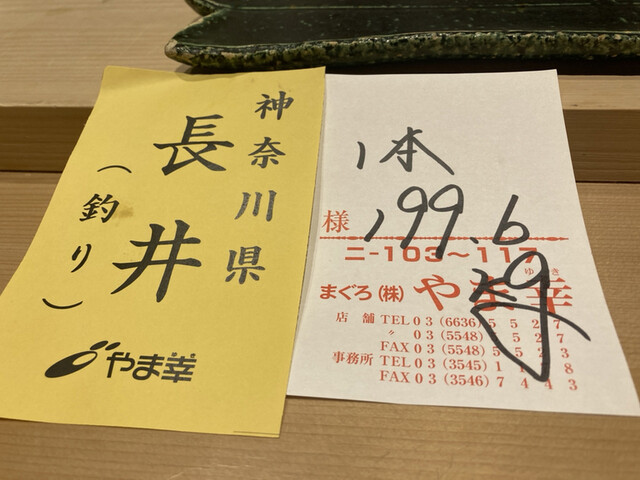 神奈川県
長井
（釣り）
やま幸
1本
様
199.6
ニ-103〜117
ゆき
まぐろ(株) やま幸
店舗 TEL 03 (6636) 5 5 2 7
〃 03 (5548)
FAX 03 (5548) 5 5 2 3
事務所 TEL 03 (3545)
FAX 03 (3546) 7 4 4 3